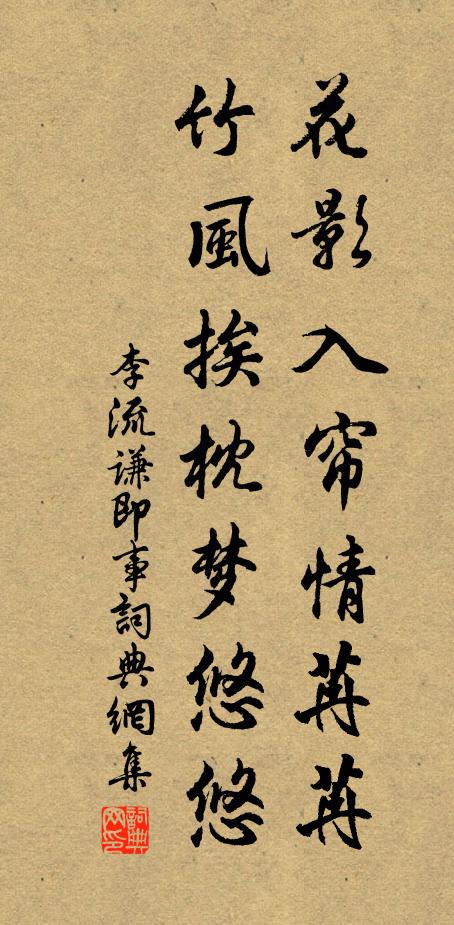 花影入帘情苒苒
竹風挨枕梦悠悠
李流謙即事詞典網集
詞典网印